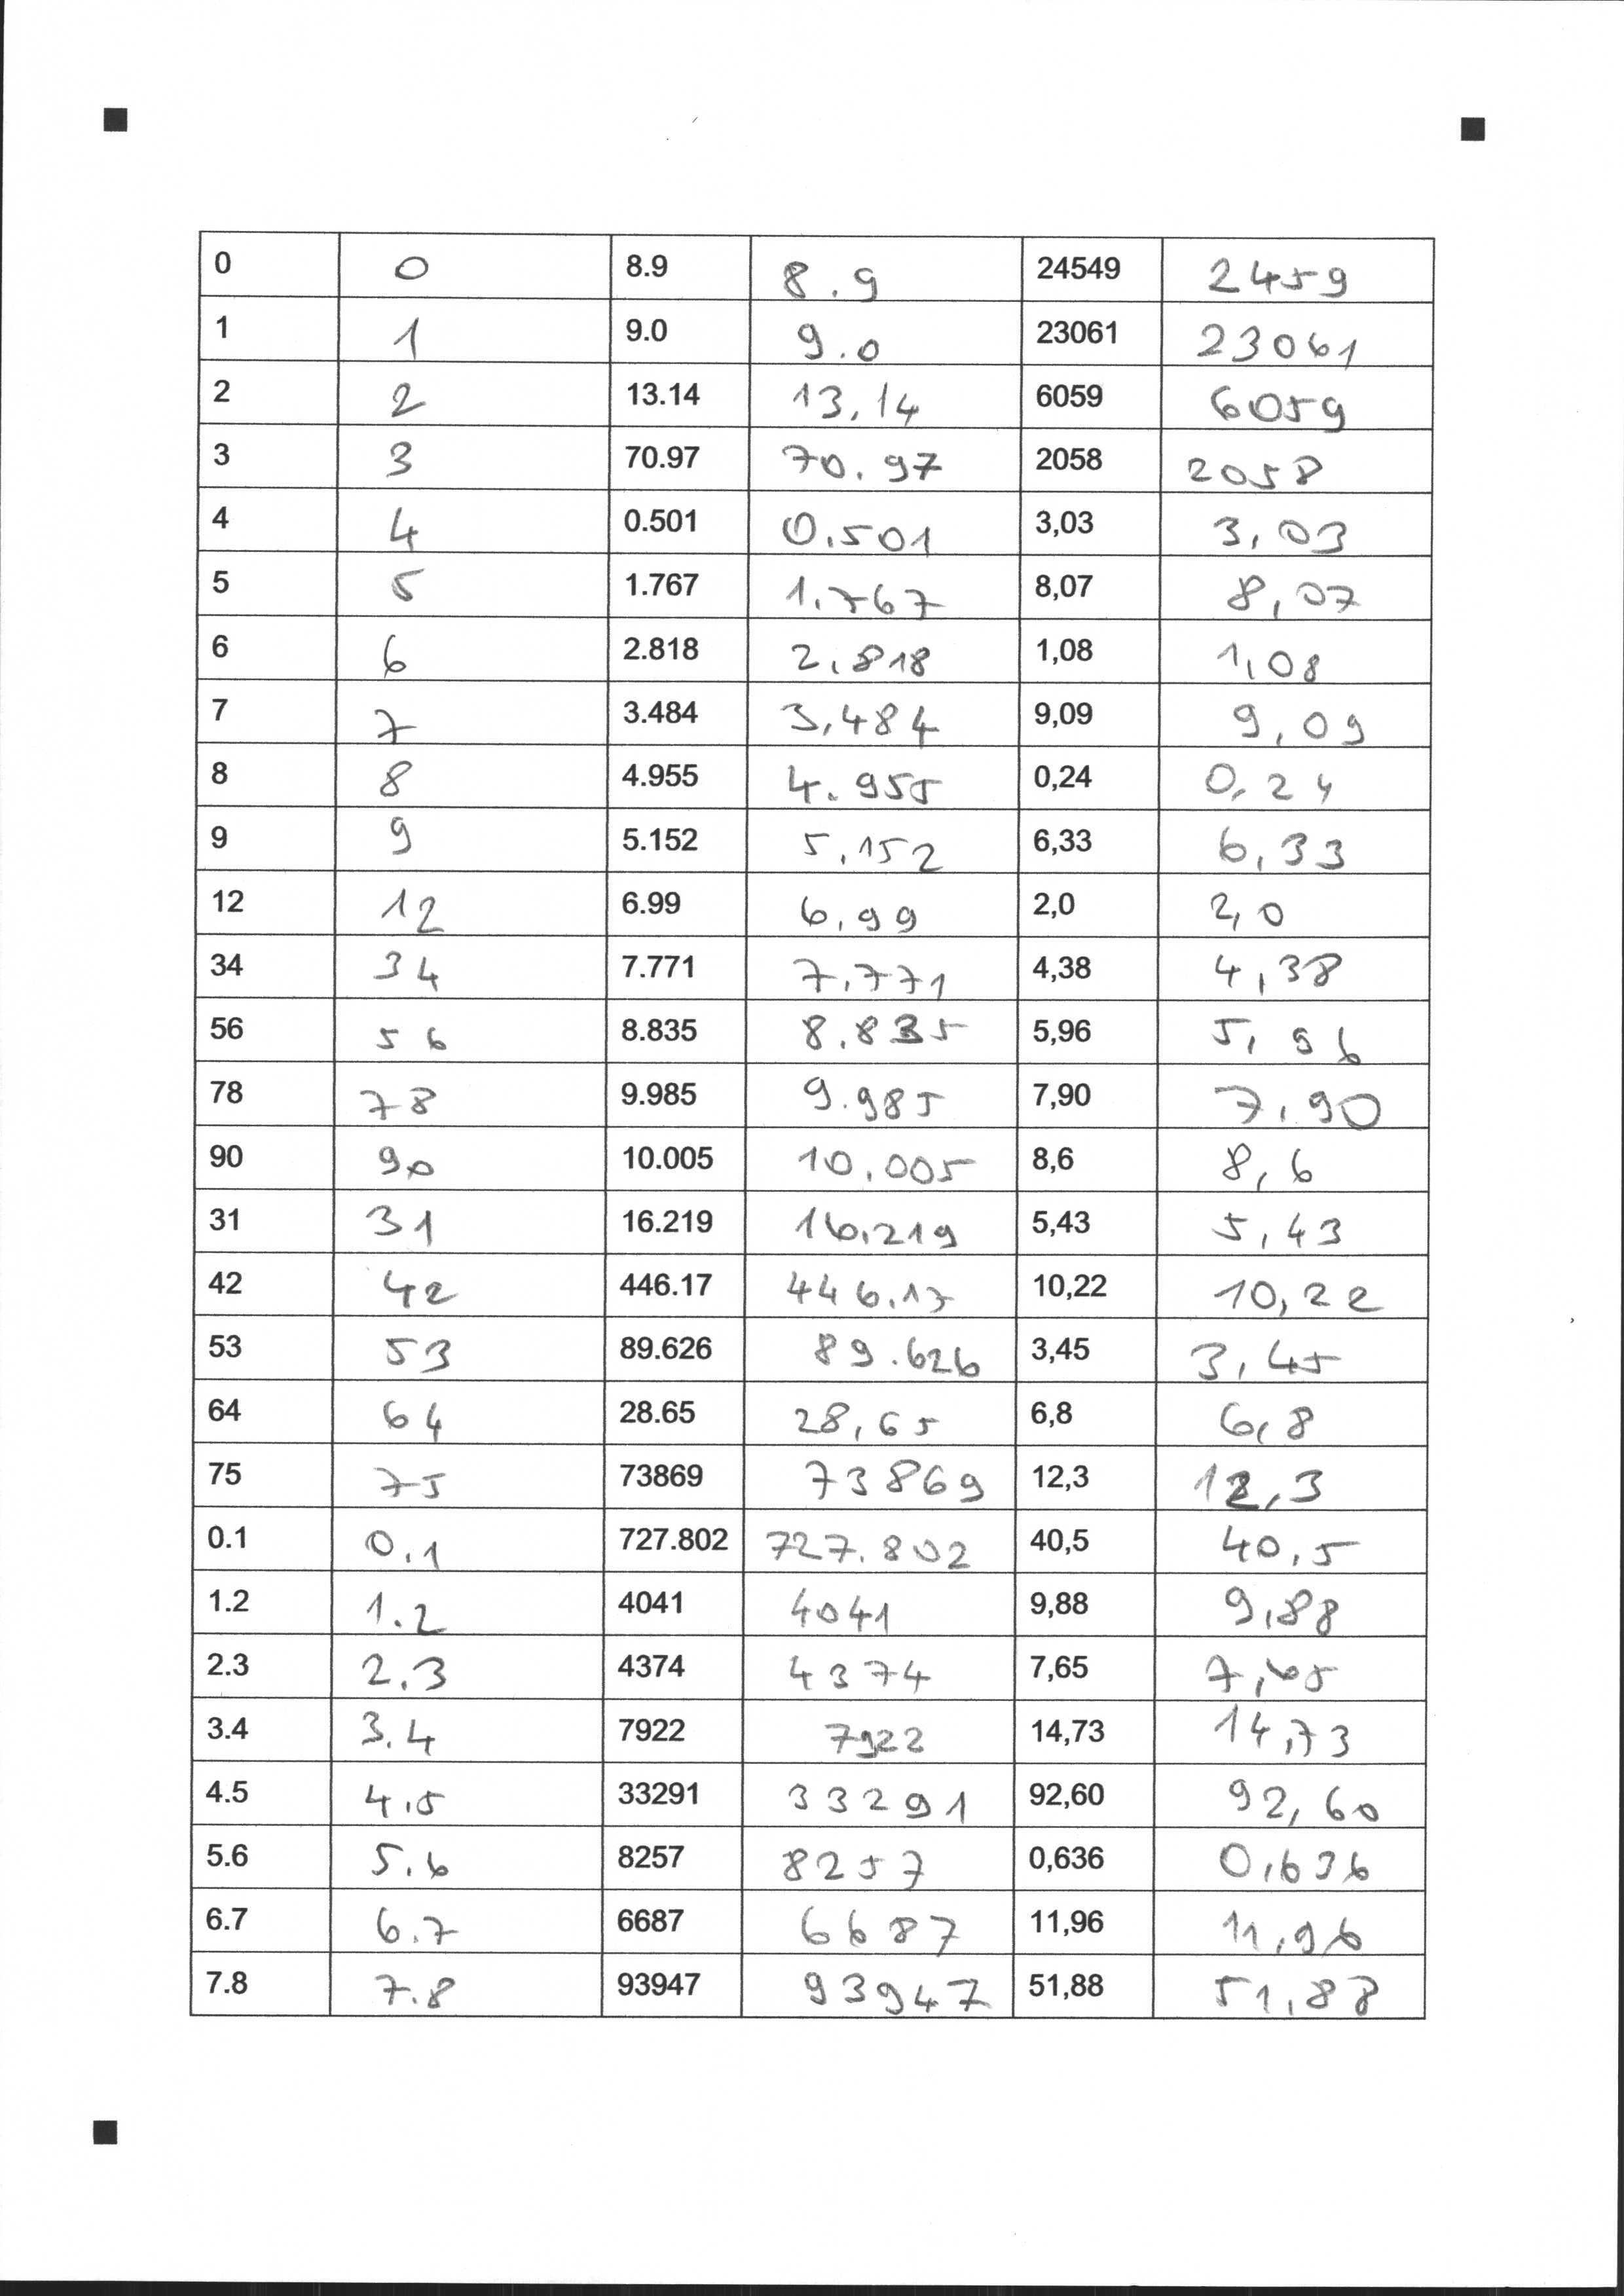 0 0 8.9 8.9 24549 2459
1 1 9.0 9.0 23061 23061
2 2 13.14 13,14 6059 6059
3 3 70.97 70.97 2058 2058
4 4 0.501 0.501 3,03 3,03
5 5 1.767 1.767 8,07 8,07
6 6 2.818 2.818 1,08 1,08
7 7 3.484 3,484 9,09 9,09
8 8 4.955 4.955 0,24 0,24
9 9 5.152 5.152 6,33 6,33
12 12 6.99 6,99 2,0 2,0
34 34 7.771 7.771 4,38 4,38
56 56 8.835 8.835 5,96 5,96
78 78 9.985 9.985 7,90 7,90
90 90 10.005 10.005 8,6 8,6
31 31 16.219 16.219 5,43 5,43
42 42 446.17 446.17 10,22 10,22
53 53 89.626 89.626 3,45 3,45
64 64 28.65 28,65 6,8 6,8
75 75 73869 73869 12,3 12,3
0.1 0.1 727.802 727.802 40,5 40,5
1.2 1.2 4041 4041 9,88 9,88
2.3 2.3 4374 4374 7,65 7,65
3.4 3.4 7922 7922 14,73 14,73
4.5 4.5 33291 33291 92,60 92,60
5.6 5.6 8257 8257 0,636 0,636
6.7 6.7 6687 6687 11,96 11,96
7.8 7.8 93947 93947 51,88 51,88